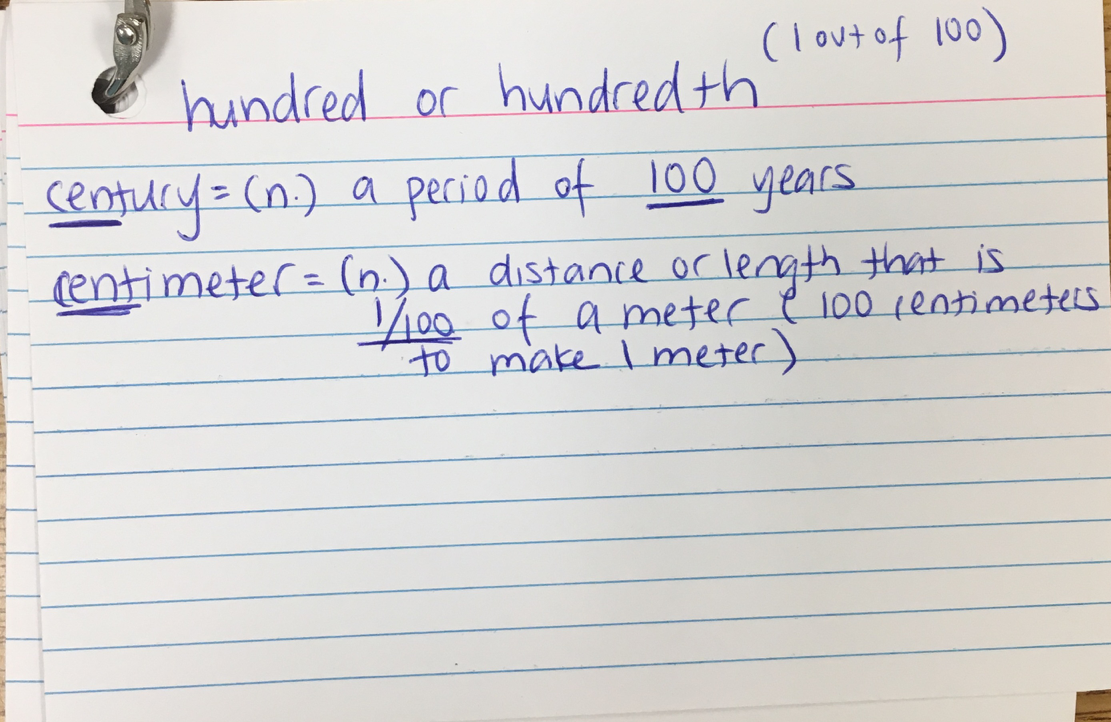 (1 out of 100)
hundred or hundredth
century = (n.) a period of 100 years
centimeter = (n.) a distance or length that is
1/100 of a meter ( 100 centimeters
to make 1 meter)